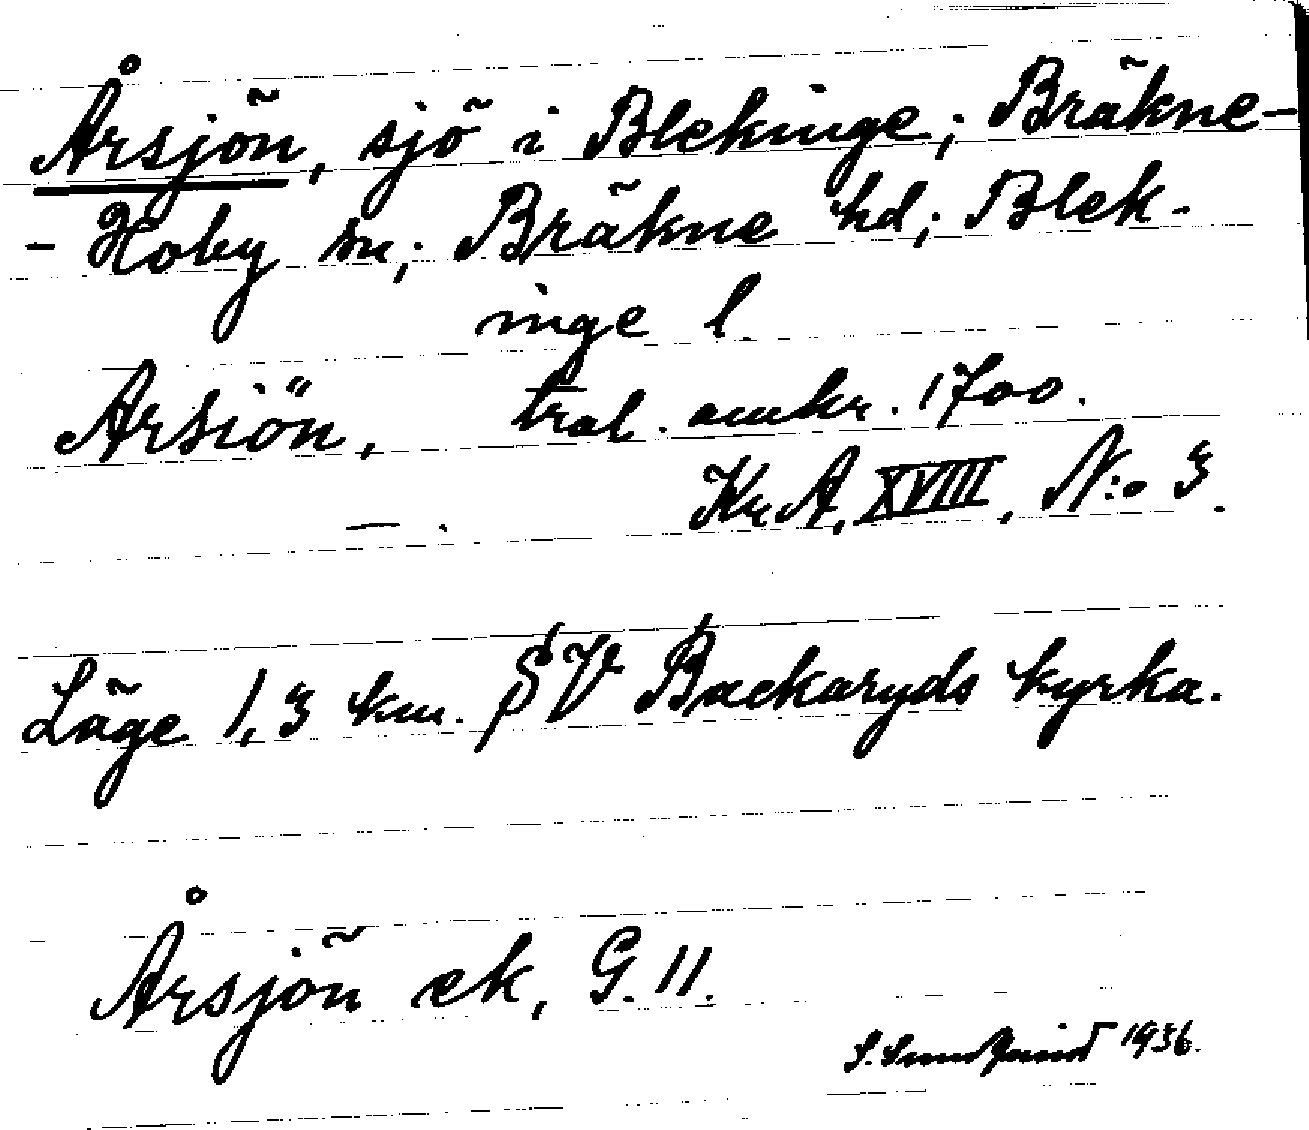 Årsjön, sjö i Blekinge; Bräkne-
- Hoby sn; Bräkne hd; Blek-
inge l.
Arsiön, tral. omkr. 1700.
—. Kr.A. XVIII, N:o 3.
Läge 1,3 km. SV Backaryds kyrka.
Årsjön ek, G. 11.
S. 1936.